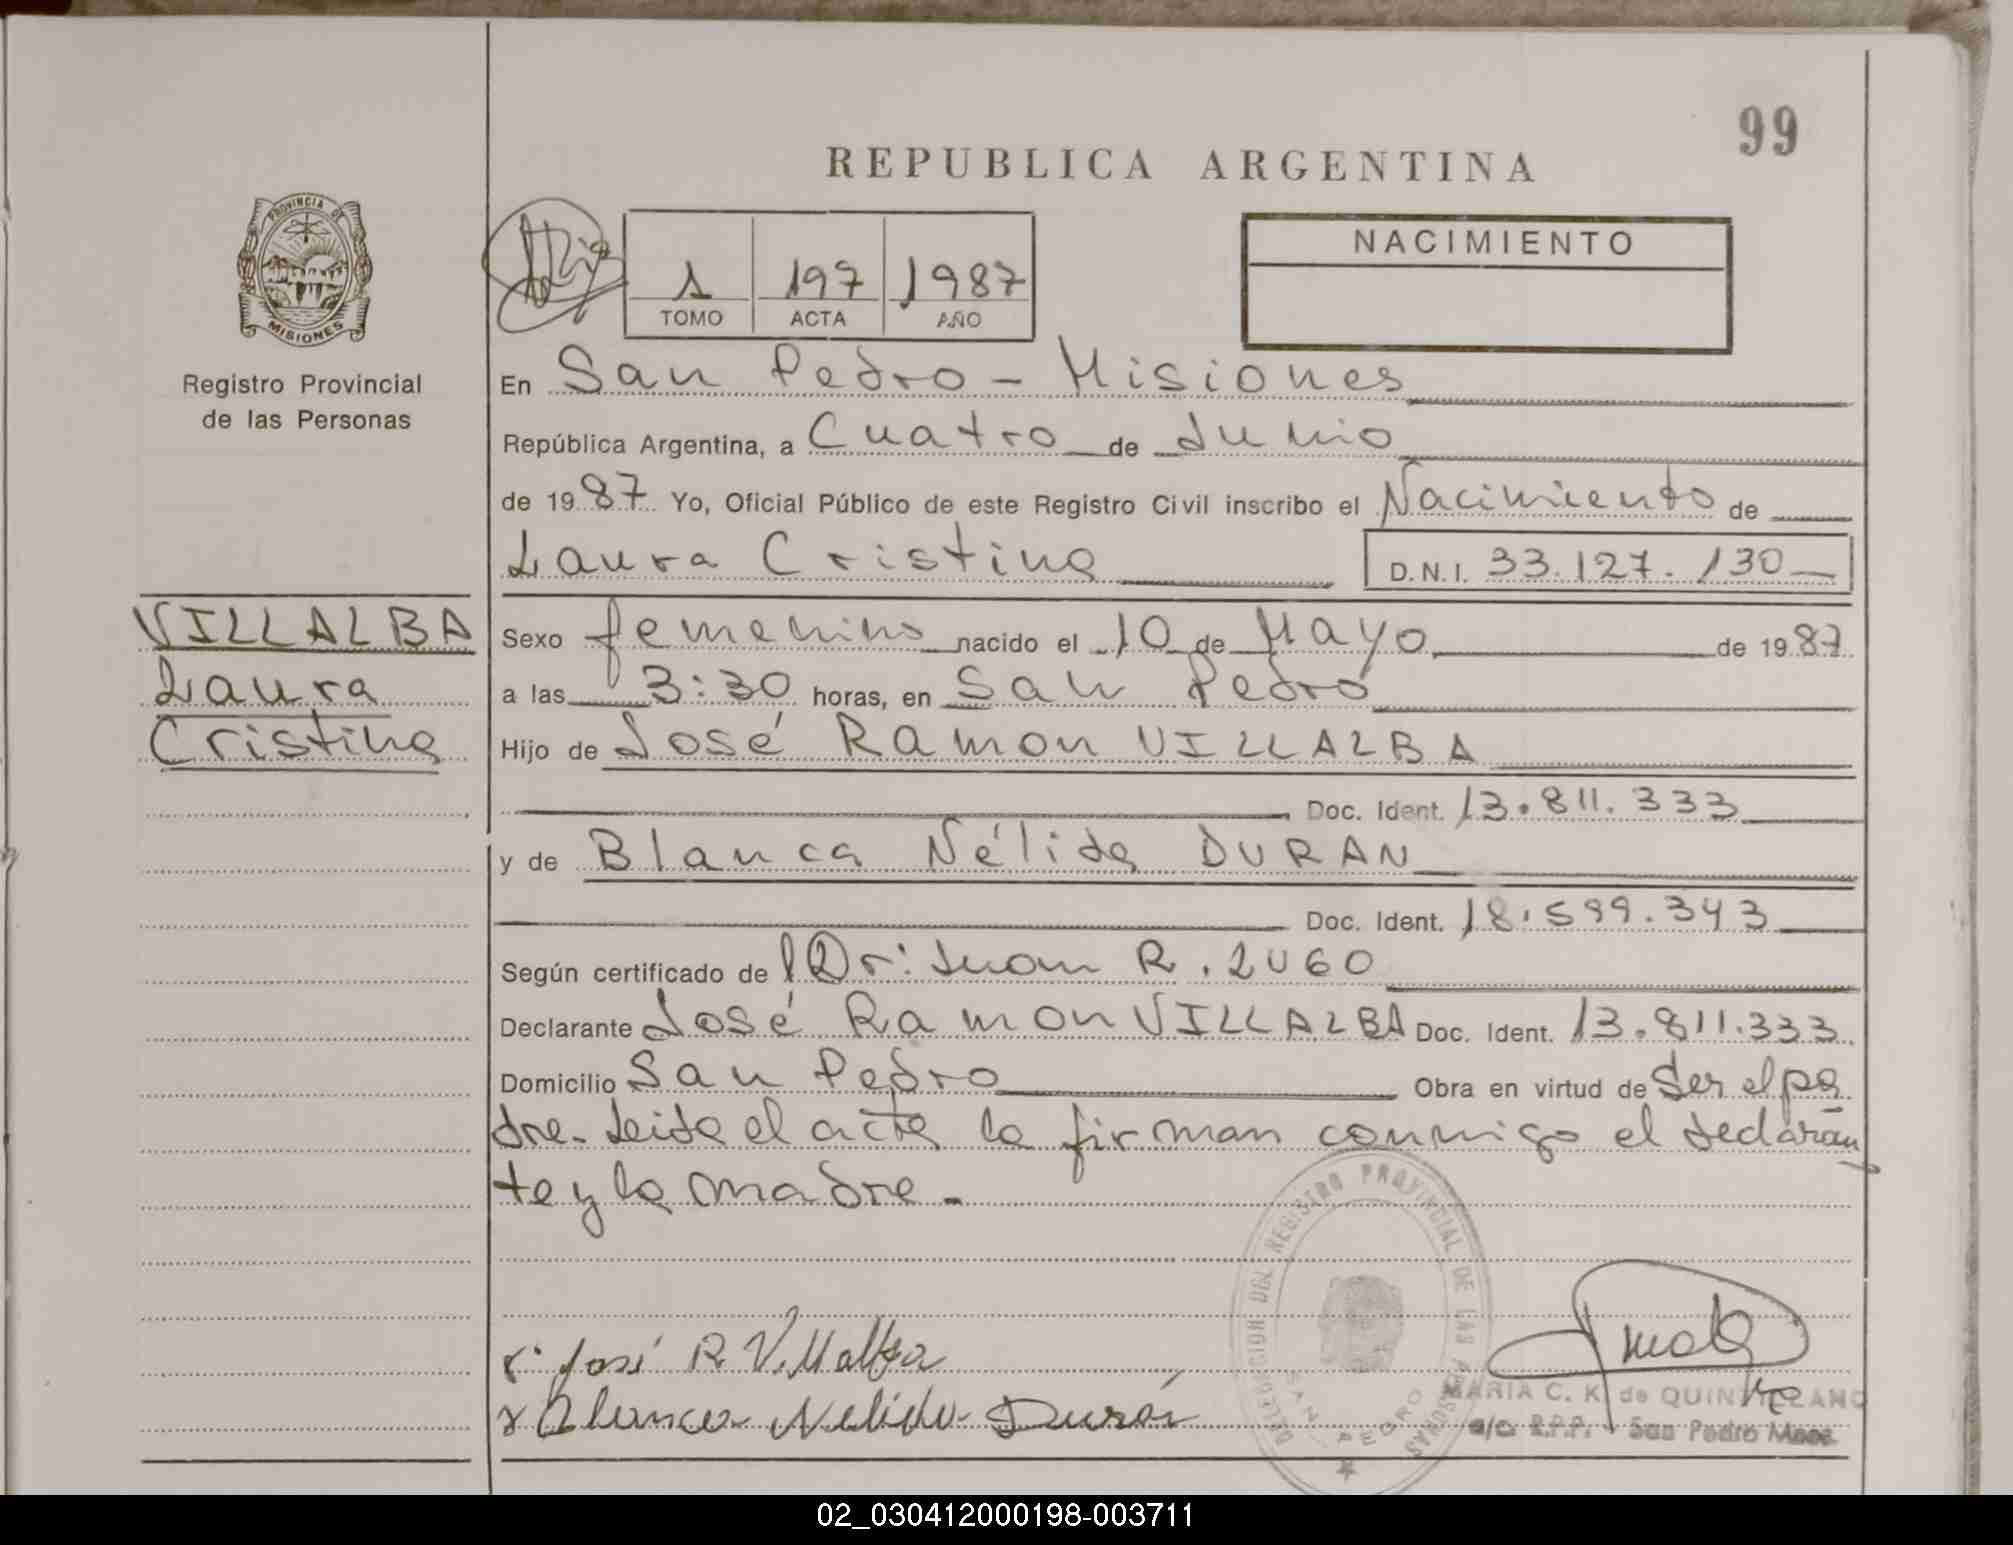 99
REPUBLICA ARGENTINA
PROVINCIA DE
MISIONES
Registro Provincial
de las Personas
1 197 1987
TOMO ACTA AÑO
NACIMIENTO
En San Pedro - Misiones
República Argentina, a Cuatro de Junio
de 1987 Yo, Oficial Público de este Registro Civil inscribo el Nacimiento de
Laura Cristina D.N.I. 33.127.130
VILLALBA
Laura
Cristina
Sexo femenino nacido el 10 de Mayo de 1987
a las 3:30 horas, en San Pedro
Hijo de José Ramon VILLALBA
Doc. Ident. 13.811.333
y de Blanca Nélida DURAN
Doc. Ident. 18.599.343
Según certificado de Dr: Juan R. LUGO
Declarante José Ramon VILLALBA Doc. Ident. 13.811.333
Domicilio San Pedro Obra en virtud de Ser el pa
dre. Leida el acta la firman conmigo el declaran
te y la madre.-
José R. Villalba
Blanca Nelida Durán
DELEGACION DEL REGISTRO PROVINCIAL DE LAS PERSONAS
SAN PEDRO
MARIA C. K. de QUINTEZANO
a/c. R.P.P. San Pedro Mnes.
02_030412000198-003711